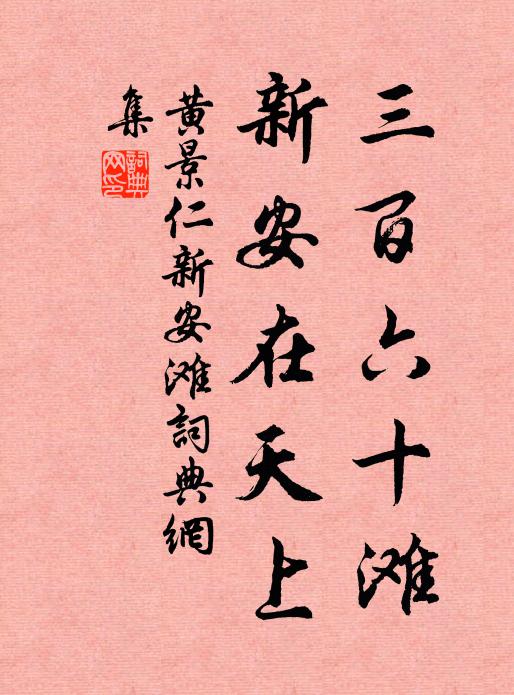 三百六十滩
新安在天上
黄景仁新安滩詞典網
集
詞典网印